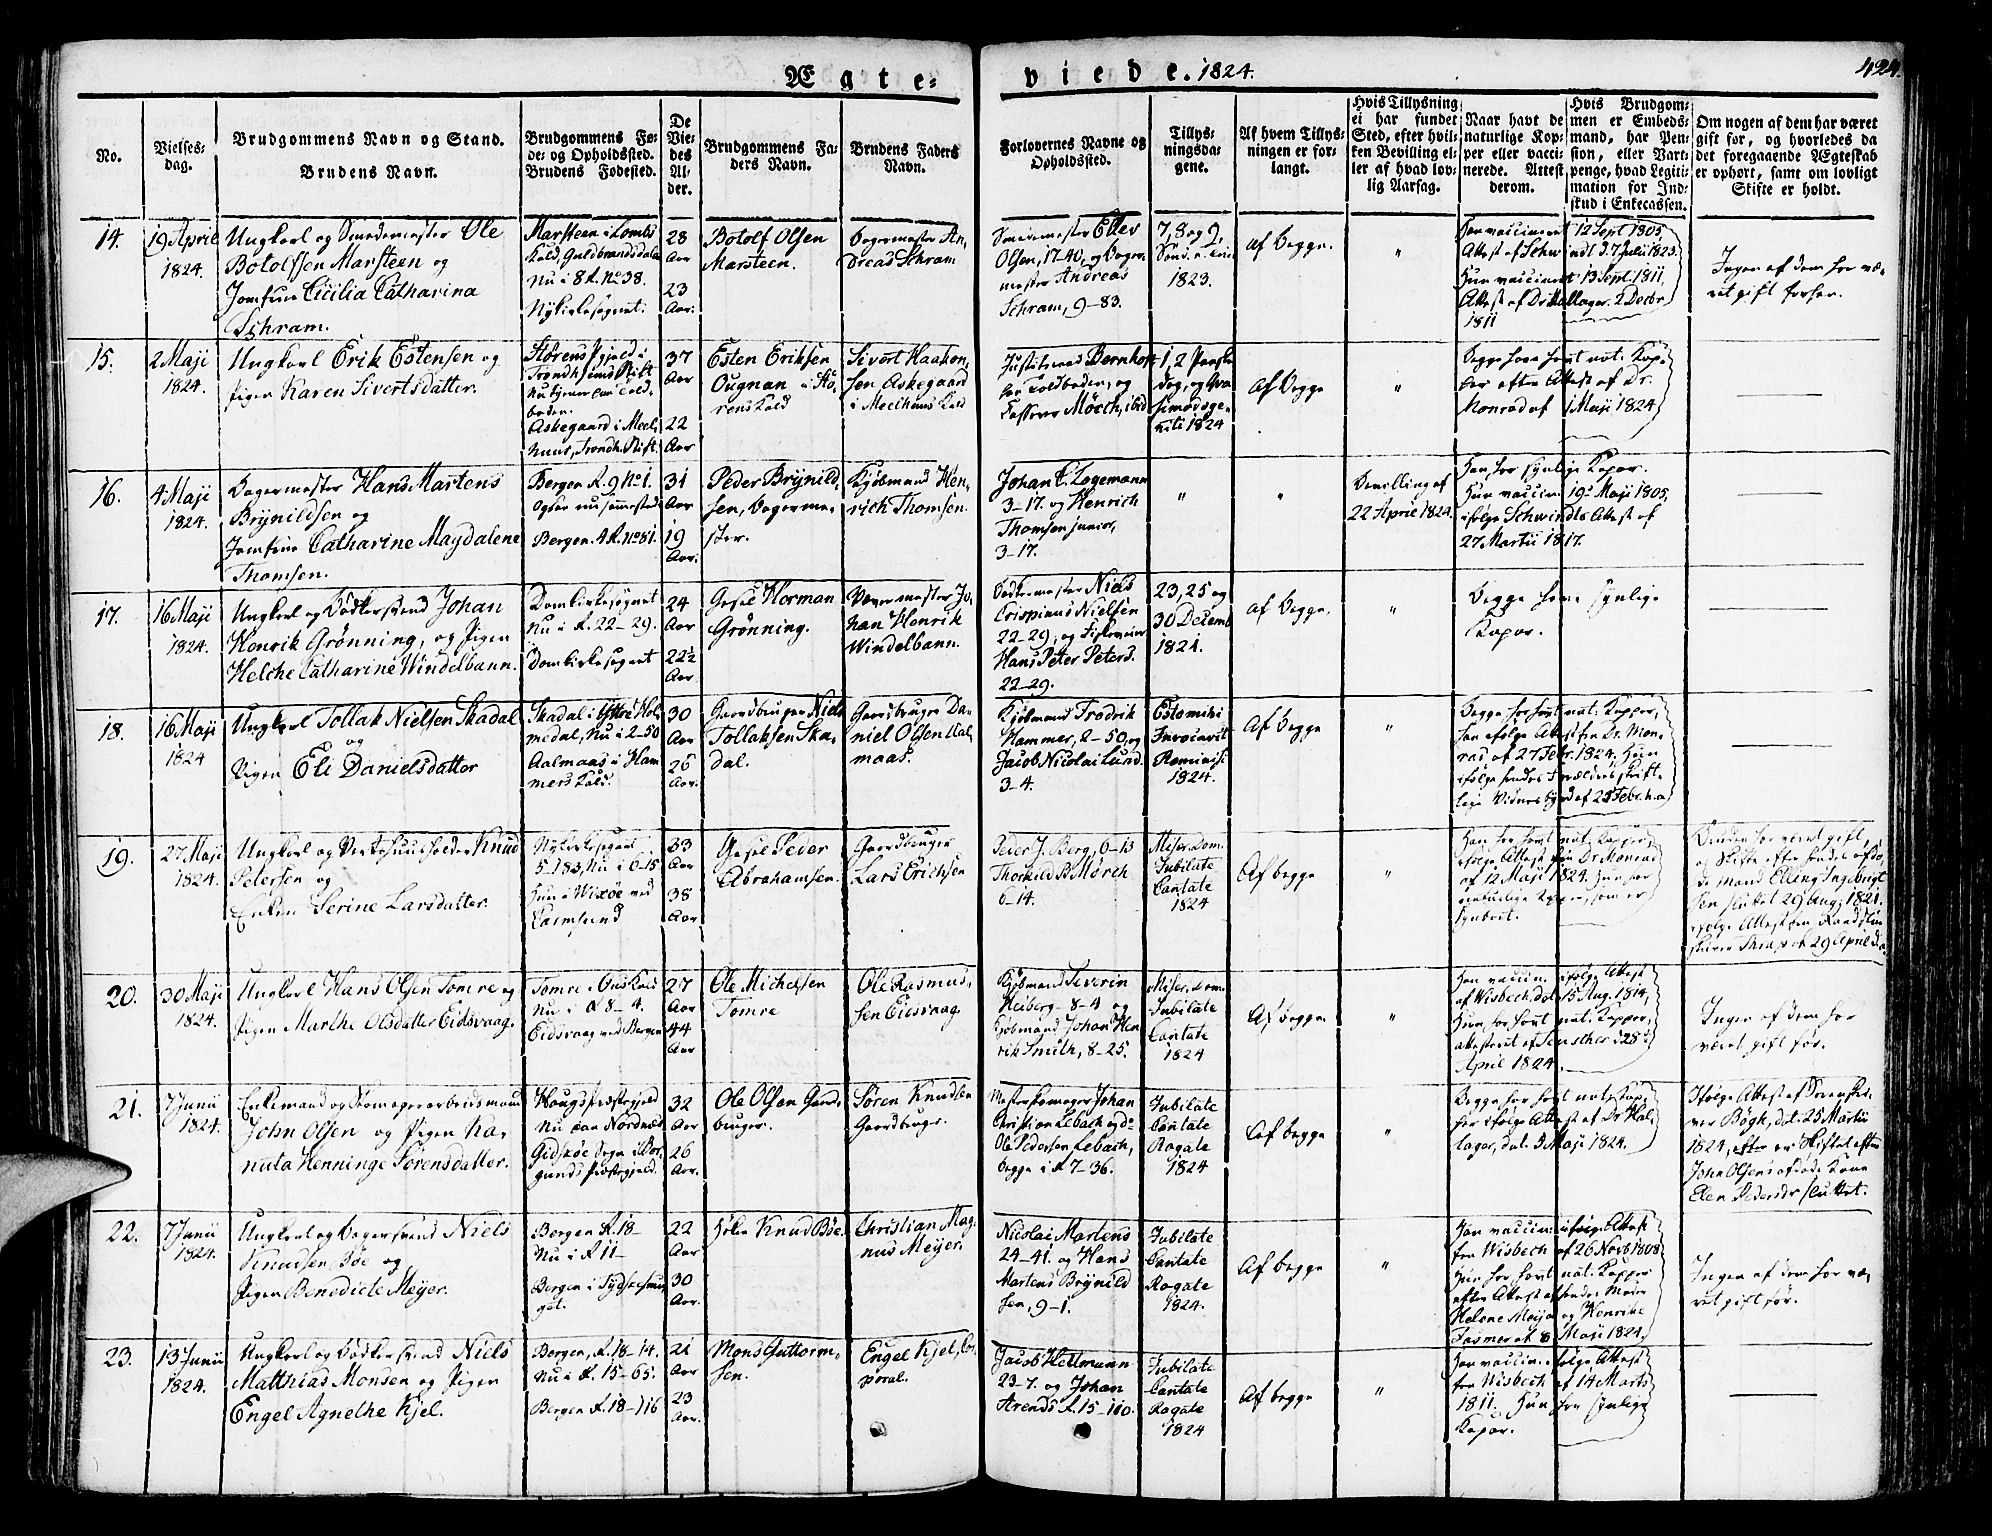 Ægte-
viede. 1824.
424.
No.
Vielses-
dag.
Brudgommens Navn og Stand.
Brudens Navn.
Brudgommens Fø-
de- og Opholdssted.
Brudens Fødested.
De
Vie-
des
Al-
der.
Brudgommens Fa-
ders Navn.
Brudens Faders
Navn.
Forlovernes Navne og
Opholdssted.
Tillys-
ningsda-
gene.
Af hvem Tillys-
ningen er for-
langt.
Hvis Tillysning
ei har fundet
Sted, efter hvil-
ken Bevilling el-
ler af hvad lov-
lig Aarsag.
Naar havt de
naturlige Kop-
per eller vacci-
nerede. Attest
derom.
Hvis Brudgom-
men er Embeds-
mand, har Pen-
sion, eller Vart-
penge, hvad Legiti-
mation for Ind-
skud i Enkecassen.
Om nogen af dem har været
gift før, og hvorledes da
det foregaaende Ægteskab
er ophørt, samt om lovligt
Skifte er holdt.
14.
19 April
1824.
Ungkarl og Smedemester Ole
Botolfsen Marsteen og
Jomfrue Cicilia Catharina
Schram.
Marsteen i Lombs
Kald, Guldbrandsdalen
Nu i 8 R. No 38.
Nykirkesognet.
28
Aar
23
Aar.
Botolf Olsen
Marsteen.
Bagermester An-
dreas Schram
Smedemester Ellev
Olsen, 17-40, og Bager-
mester Andreas
Schram, 9-83.
7, 8 og 9,
1823.
Af begge.
"
Han vaccineret 12 Sept 1805,
Attest af Schwindt d. 7 Julii 1823.
Hun vaccineret 13 Sept. 1811,
Attest af Dr. Hallager. 2 Decbr
1811
Ingen af dem har væ-
ret gift forhen.
15.
2 Maji
1824.
Ungkarl Erik Estensen og
Pigen Karen Sivertsdatter.
Størens Pgjeld i
Trondhjems Stift
Askegaard i Meel-
huus, Trondh. Stift.
37
Aar
22
Aar
Esten Eriksen
Ougnan i Stø-
rens Kald
Sivert Haakon-
sen Askegaard
i Meelhuus Kald
Justitsraad Bernhoft
paa Toldboden, og
Mørch, ibid
1, 2 Paaske
dag, og Qva-
simodoge-
niti 1824
Af begge
"
Begge have havt nat. Kop-
per efter Attest af Dr.
Monrad af 1 Maji 1824
16.
4 Maji
1824.
Bagermester Hans Martens
Brynildsen og
Jomfrue Catharine Magdalene
Thomsen.
Bergen R. 9 No 1.
Bergen. 4 R. No 81.
31
Aar
19
Aar.
Peder Brynild-
sen, Bagerme-
ster.
Kjøbmand Hen-
rich Thomsen.
Johan C. Logemann
3-17. og Henrich
Thomsen junior,
3-17.
"
"
Bevilling af
22 April 1824
Han har synlige Kopar.
Hun vaccin. 19 Maji 1805,
ifølge Schwindts Attest af
27 Martii 1817.
17.
16 Maji
1824.
Ungkarl og Bødkersvend Johan
Henrik Grønning, og Pigen
Helche Catharine Windelbann.
Domkirkesognet
Nu i R. 22-29.
Domkirkesognet
24
Aar
22½
Aar
Gesel Herman
Grønning.
Vævermester Jo-
han Henrik
Windelbann.
Bødkermester Niels
Crispinus Nielsen
22-29, og
Hans Peter Peters.
22-29.
23, 25 og
30 Decemb
1821.
Af begge.
"
Begge have synlige
Kopar.
18.
16 Maji
1824
Ungkarl Tollak Nielsen Skadal
og
Pigen Eli Danielsdatter
Skadal i Yttre Hol-
medal, Nu i 2-50
Aalmaas i Ham-
mers Kald.
30
Aar
26
Aar.
Gaardbruger Niels
Tollaksen Ska-
dal.
Gaardbruger Da-
niel Olsen Aal-
maas.
Kjøbmand Fredrik
Hammer, 2-50, og
Jacob Nicolai Lund
3-4.
Estomihi
Invocavit
Reminisc.
1824.
Af begge
"
Begge har havt nat. Kopper,
han ifølge Attest fra Dr. Mon-
rad af 27 Febr. 1824, Hun
ifølge hendes Forældres skrift-
lige Vidnesbyrd af 25 Febr. h. a
19.
27 Maji
1824.
Ungkarl og Vertshuusholder Knud
Petersen og
Enken Serine Larsdatter.
Nykirkesognet
5-183, Nu i 6-15
Hun i Wixøe ved
Karmsund
33
Aar
38
Aar
Gesel Peder
Abrahamsen.
Gaardbruger
Lars Erichsen
Peder J. Berg, 6-13
Thorkild R Mørch
6-14.
Miser. Dom.
Jubilate
Cantate
1824
Af begge
"
Han har havt nat. Kopper,
ifølge Attest fra Dr Monrad
af 12 Maji 1824. Hun har
naturlige Kopper, som er
synbart.
Bruden har været gift,
og Skifte efter hendes afdø-
de Mand Elling Ingebrigt-
sen sluttet 29 Aug. 1821.
ifølge Attest fra
20.
30 Maji
1824.
Ungkarl Hans Olsen Tomre og
Pigen Marthe Olsdatter Eidsvaag.
Tomre i Ous Kald
Nu i R 8-4.
Eidsvaag ved Bergen
27
Aar
44
Aar
Ole Michelsen
Tomre
Ole Rasmus-
sen Eidsvaag.
Kjøbmand Severin
Heiberg, 8-4 og
Kjøbmand Johan Hen
rik Smith, 8-25.
Miser. Dom.
Jubilate
Cantate
1824
Af begge
"
Han vaccin. ifølge Attest
af Wisbech, dat. 15 Aug. 1814,
Hun har havt nat. Kopper,
April 1824.
Ingen af dem har
været gift før.
21.
7 Junii
1824.
Enkemand og Skomagerarbeidsmand
John Olsen og Pigen Ka-
nuta Henninge Sørensdatter.
Haugs Præstegjeld
Nu paa Nordnæs
Gidskøe Sogn i Bor-
gunds Præstegjeld.
32
Aar
26
Aar.
Ole Olsen Gaard-
bruger.
Søren Knudsen
Gaardbruger.
Mesterskomager Johan
Christian Lebach og do
Ole Pedersen Lebach,
begge i R 7-36.
Jubilate
Cantate
Rogate
1824
Af begge
"
Begge har havt nat Kop-
per ifølge Attest af Dr Hal-
lager, dat. 3 Maji 1824.
Ifølge Attest af Sorenskri-
ver Bøgh, dat. 25 Martii
1824, er Skiftet efter
John Olsens afdøde Kone
Elen Pedersdr sluttet.
22.
7 Junii
1824.
Ungkarl og Bagersvend Niels
Knudsen Bøe og
Pigen Benedicte Meyer.
Bergen R. 18-
Nu i R 11-
Bergen i Tydskesoug-
net.
22
Aar
30
Aar.
Knud Bøe.
Christian Mag-
nus Meyer.
Nicolai Martens
24-41. og Hans
Martens Brynild-
sen, 9-1.
Jubilate
Cantate
Rogate
1824.
Af begge
"
Han vaccin. ifølge Attest
fra Wisbech af 26 Novb 1808
Hun har havt nat. Kopper
efter Attest af hendes Moder
Helene Meyer og Henrike
Fasmer af 8 Maji 1824.
Ingen af dem har væ-
ret gift før.
23.
13 Junii
1824.
Ungkarl og Bødkersvend Niels
Matthias Monsen og Pigen
Engel Agnethe Kjel.
Bergen, R. 18-14.
Nu i R. 15-65.
Bergen R. 18-116
21
Aar
23
Aar.
Mons Guttorm-
sen.
Engel Kjel, Cor-
poral.
Jacob Heltmann
23-7. og Johan
Arends R. 15-110.
Jubilate
Cantate
Rogate
1824
Af begge
"
Han vaccin. ifølge Attest
fra Wisbech af 14 Marts
1811. Hun har synlige
Kopar.